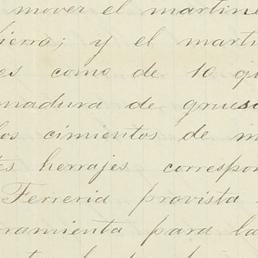 mover el martine
ierro; y el marti
es como de 10 qu
madura de grueso
los cimientos de m
es herrajes correspon
Ferreria provista
rramienta para la